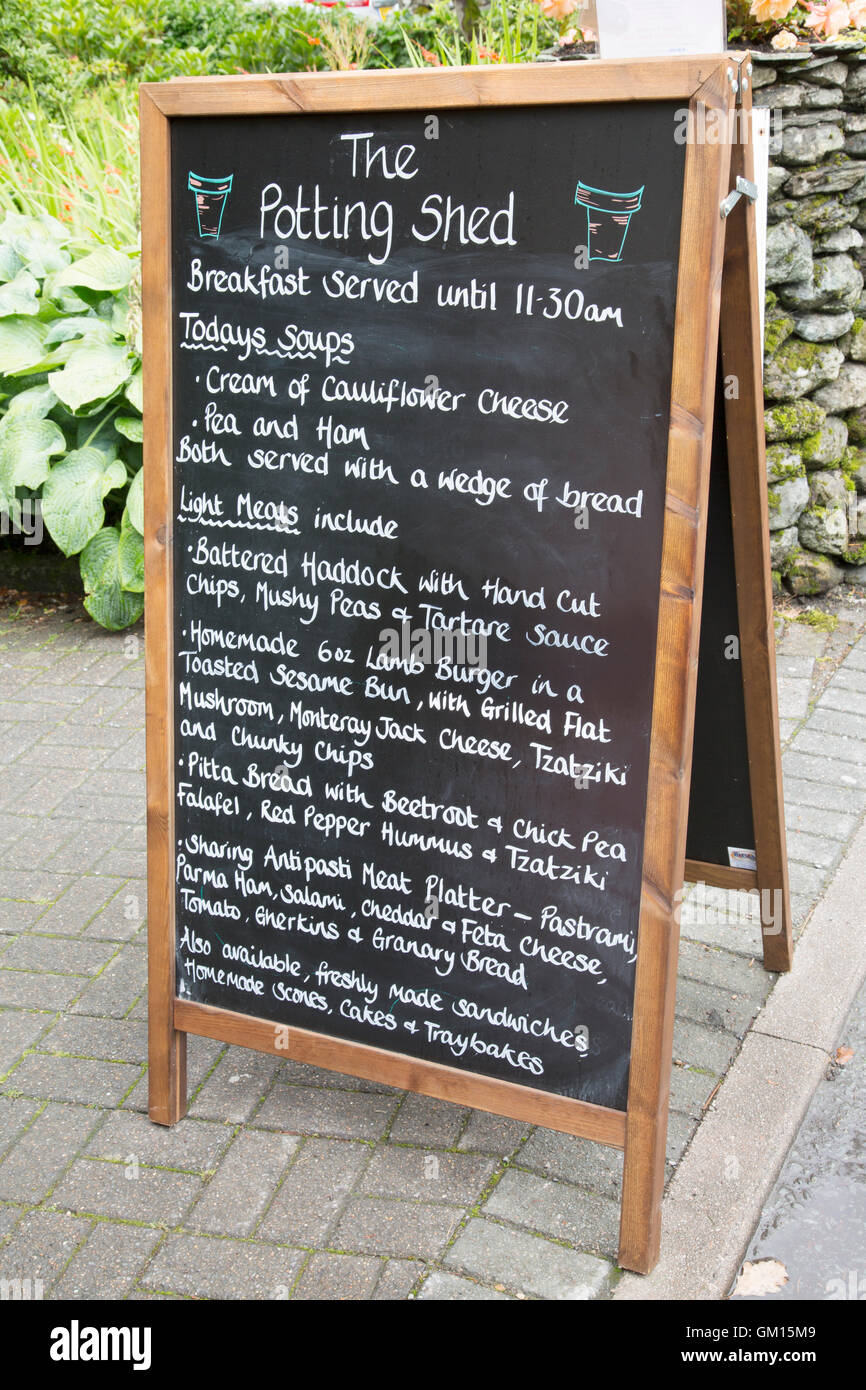 The
Potting Shed
Breakfast served until 11-30am
Todays Soups
· Cream of Cauliflower Cheese
· Pea and Ham
Both served with a wedge of bread
Light Meals include
· Battered Haddock with Hand Cut
Chips, Mushy Peas & Tartare Sauce
· Homemade 6oz Lamb Burger in a
Toasted Sesame Bun, with Grilled Flat
Mushroom, Monteray Jack Cheese, Tzatziki
and Chunky Chips
· Pitta Bread with Beetroot & Chick Pea
Falafel, Red Pepper Hummus & Tzatziki
· Sharing Antipasti Meat Platter - Pastrami,
Parma Ham, Salami, Cheddar & Feta Cheese,
Tomato, Gherkins & Granary Bread
Also available, freshly made sandwiches,
Homemade Scones, Cakes & Traybakes
alamy
Image ID: GM15M9
www.alamy.com